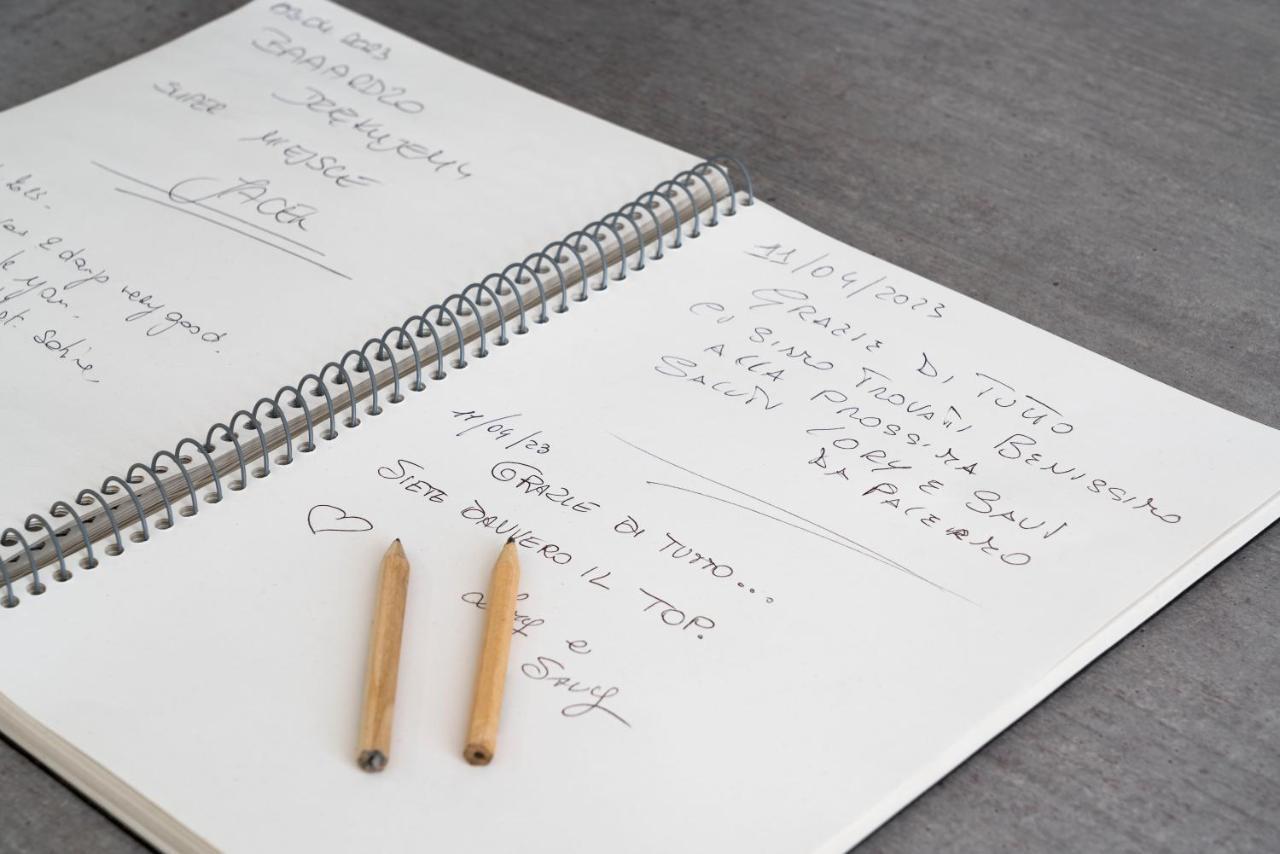 03.04 2023
BAAARDZO
DZIĘKUJEMY
SUPER MIEJSCE
JACEK
2 days very good.
11/04/2023
GRAZIE DI TUTTO
CI SIAMO TROVATI BENISSIMO
ALLA PROSSIMA
SALUTI LORY E SAVI
DA PALERMO
11/04/23
GRAZIE DI TUTTO...
SIETE DAVVERO IL TOP.
e
Savy